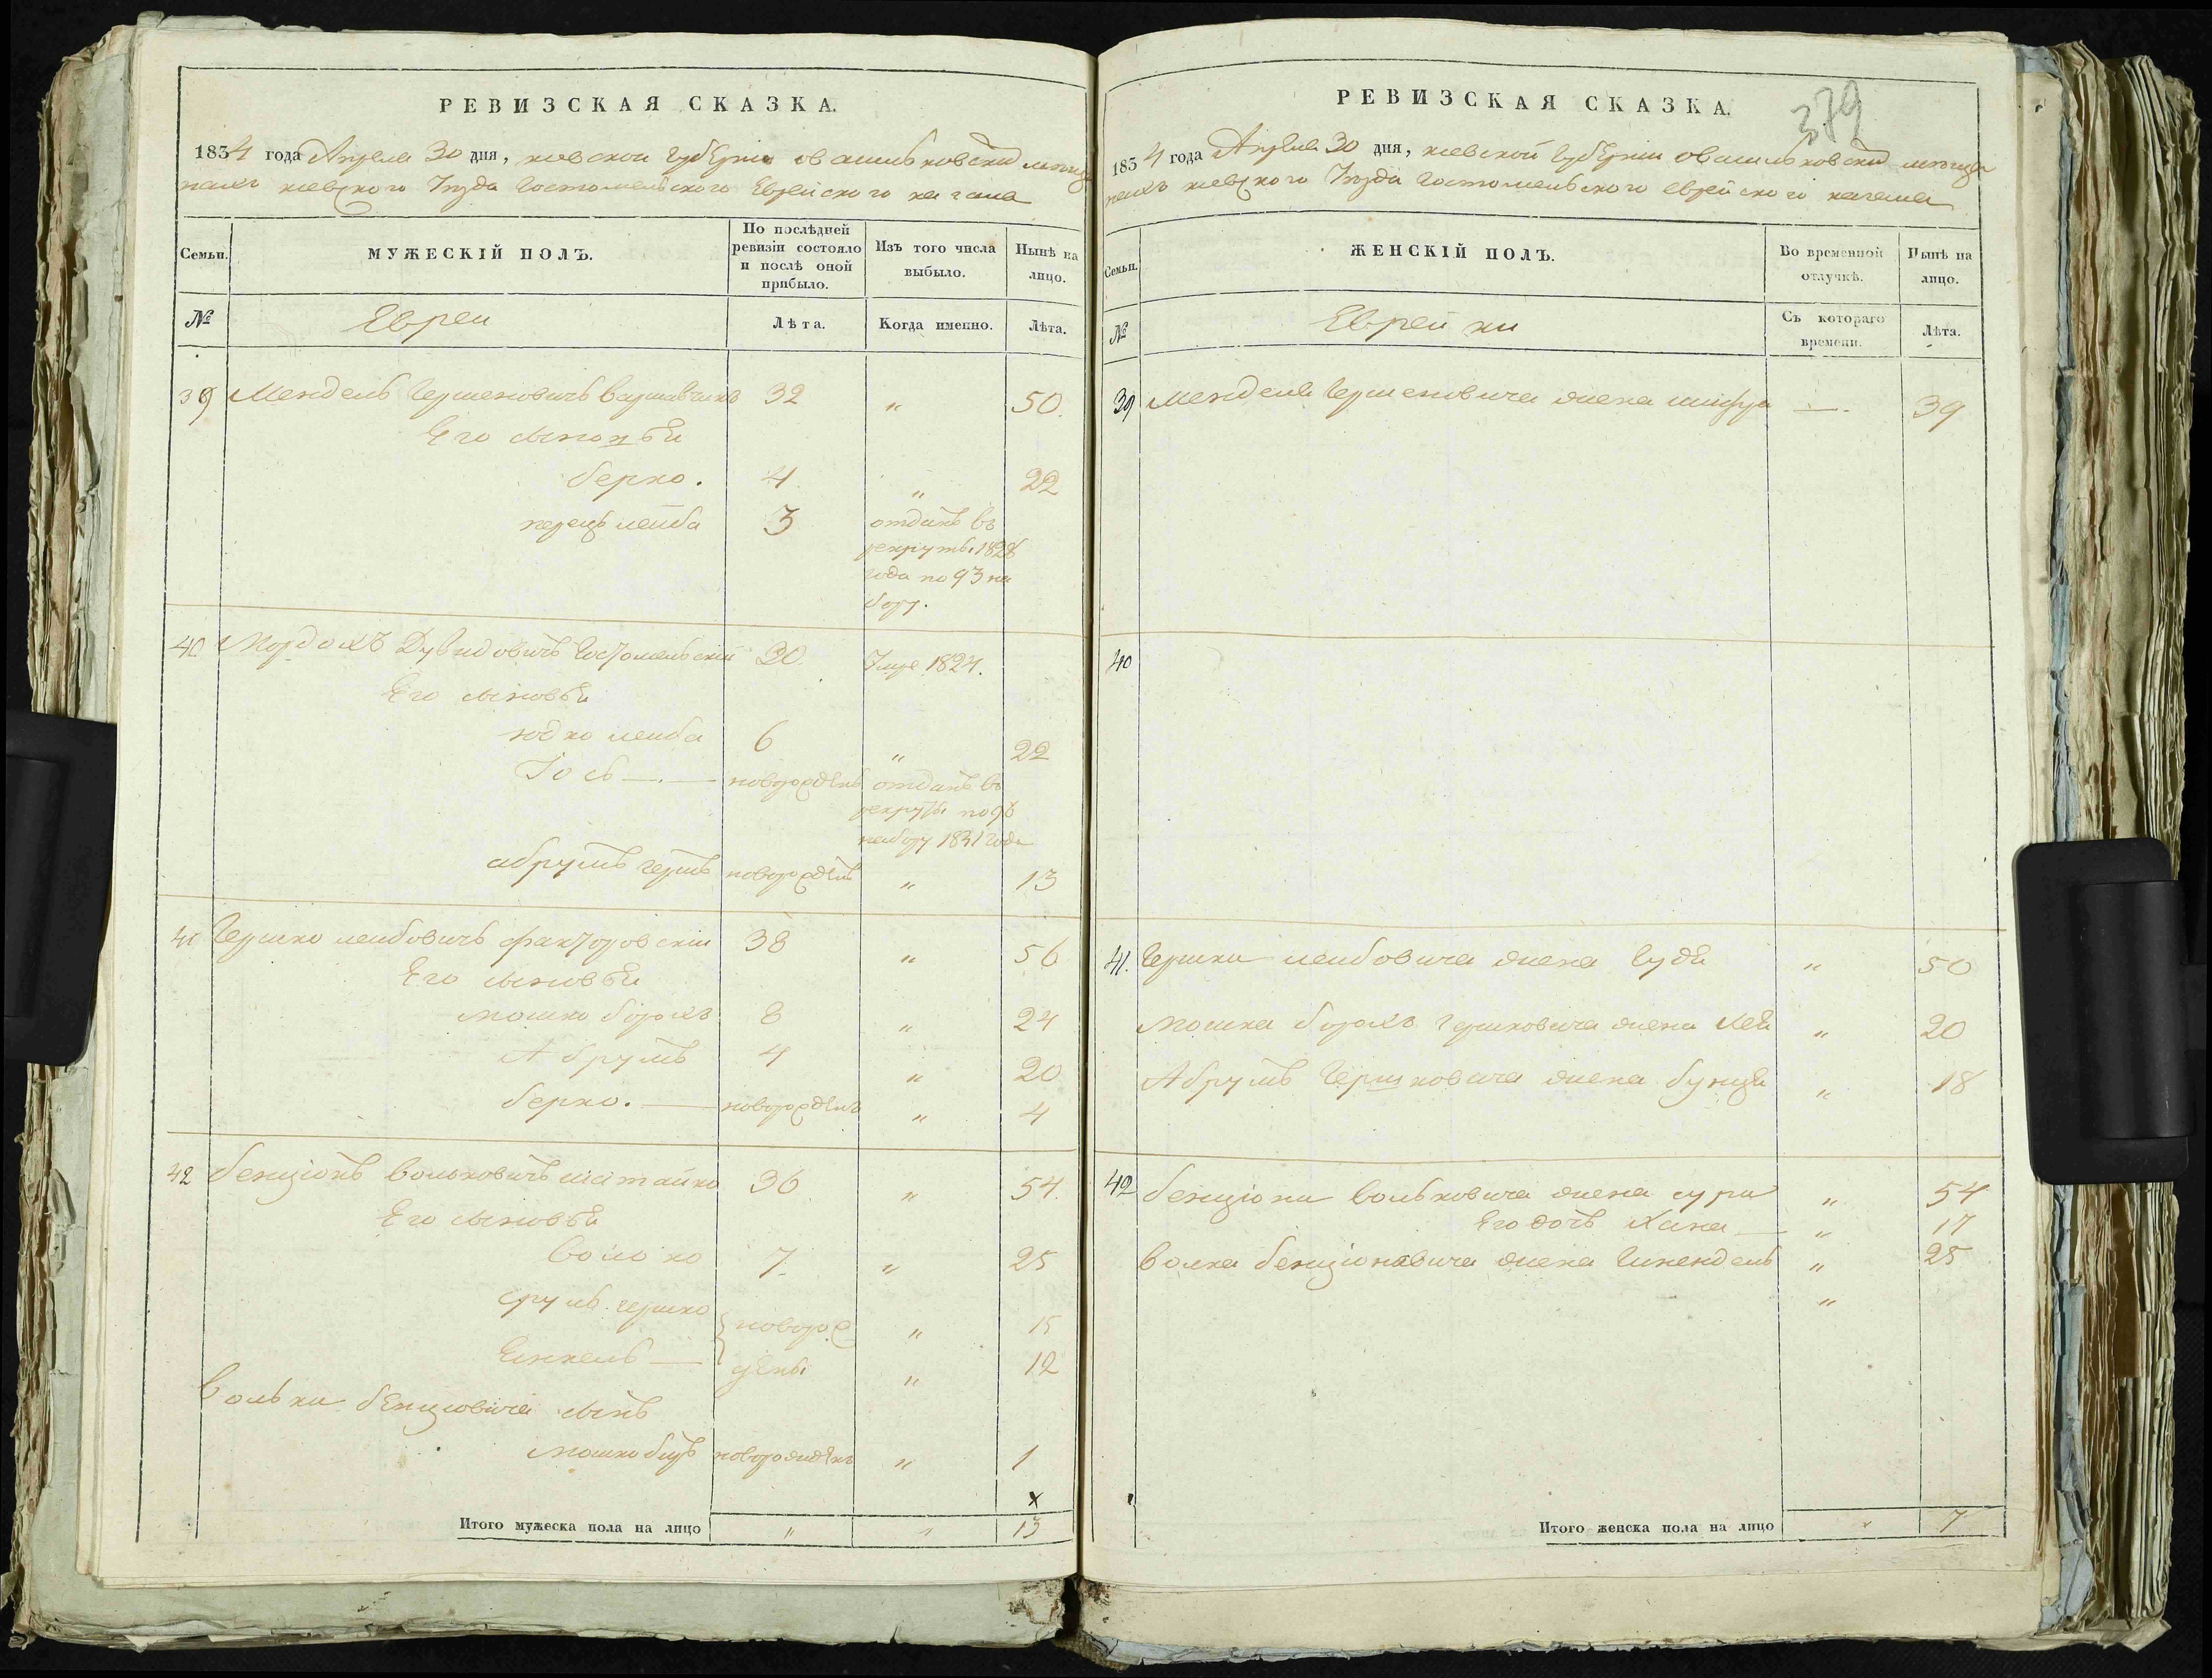 РЕВИЗСКАЯ СКАЗКА.
1834 года Апреля 30 дня, киевской губерніи овасильковскихъ мѣща
нахъ киевского уѣзда Гостомельского Еврейского кагала
Семьи.
МУЖЕСКІЙ ПОЛЪ.
По послѣдней ревизіи состояло и послѣ оной прибыло.
Изъ того числа выбыло.
Нынѣ на лицо.
№
Евреи
Лѣта.
Когда именно.
Лѣта.
39 Мендель Гершеновичъ Варшавчикъ 32 " 50.
Его сыновѣи
берко. 4 " 22
перецъ лейба 3 отданъ въ
рекруты 1828
года по 93 на
бору.
40 Мордохъ Дувидовичъ Гостомельскій 20. Умре 1824.
Его сыновѣи
юдко лейба 6 " 22
Іось — новорожденъ отданъ въ
рекруты по 96
набору 1831 года
абрумъ гершъ новорожденъ " 13
41 Гершко лейбовичъ факторовскіи 38 " 56
Его сыновѣи
мошко борохъ 8 " 24
Абрумъ 4 " 20
берко. — новорожденъ " 4
42 бенціонъ вольковичъ 36 " 54.
Его сыновѣи
волько 7. " 25
срулъ гершко новорож " 15
Еинкель — дены " 12
Вольки бенціовича сынъ
мошко новорожденъ " 1
x
Итого мужеска пола на лицо " " 13
РЕВИЗСКАЯ СКАЗКА.
379
1834 года Апреля 30 дня, киевской губерніи овасильковскихъ мѣща
нахъ киевского уѣзда Гостомельского еврейского кагала
Семьи.
ЖЕНСКІЙ ПОЛЪ.
Во временной отлучкѣ.
Нынѣ на лицо.
№
Еврейки
Съ котораго времени.
Лѣта.
39 Менделя Гершеновича жена шифра — 39
40
41. Гершки лейбовича жена Гуде " 50
мошка борохъ гершковича жена хая " 20
Абрумъ Гершковича жена бунця " 18
42 бенціона вольковича жена сура " 54
Его дочь хана — " 17
волка бенціоновича жена Шнендель " 25
"
Итого женска пола на лицо " 7